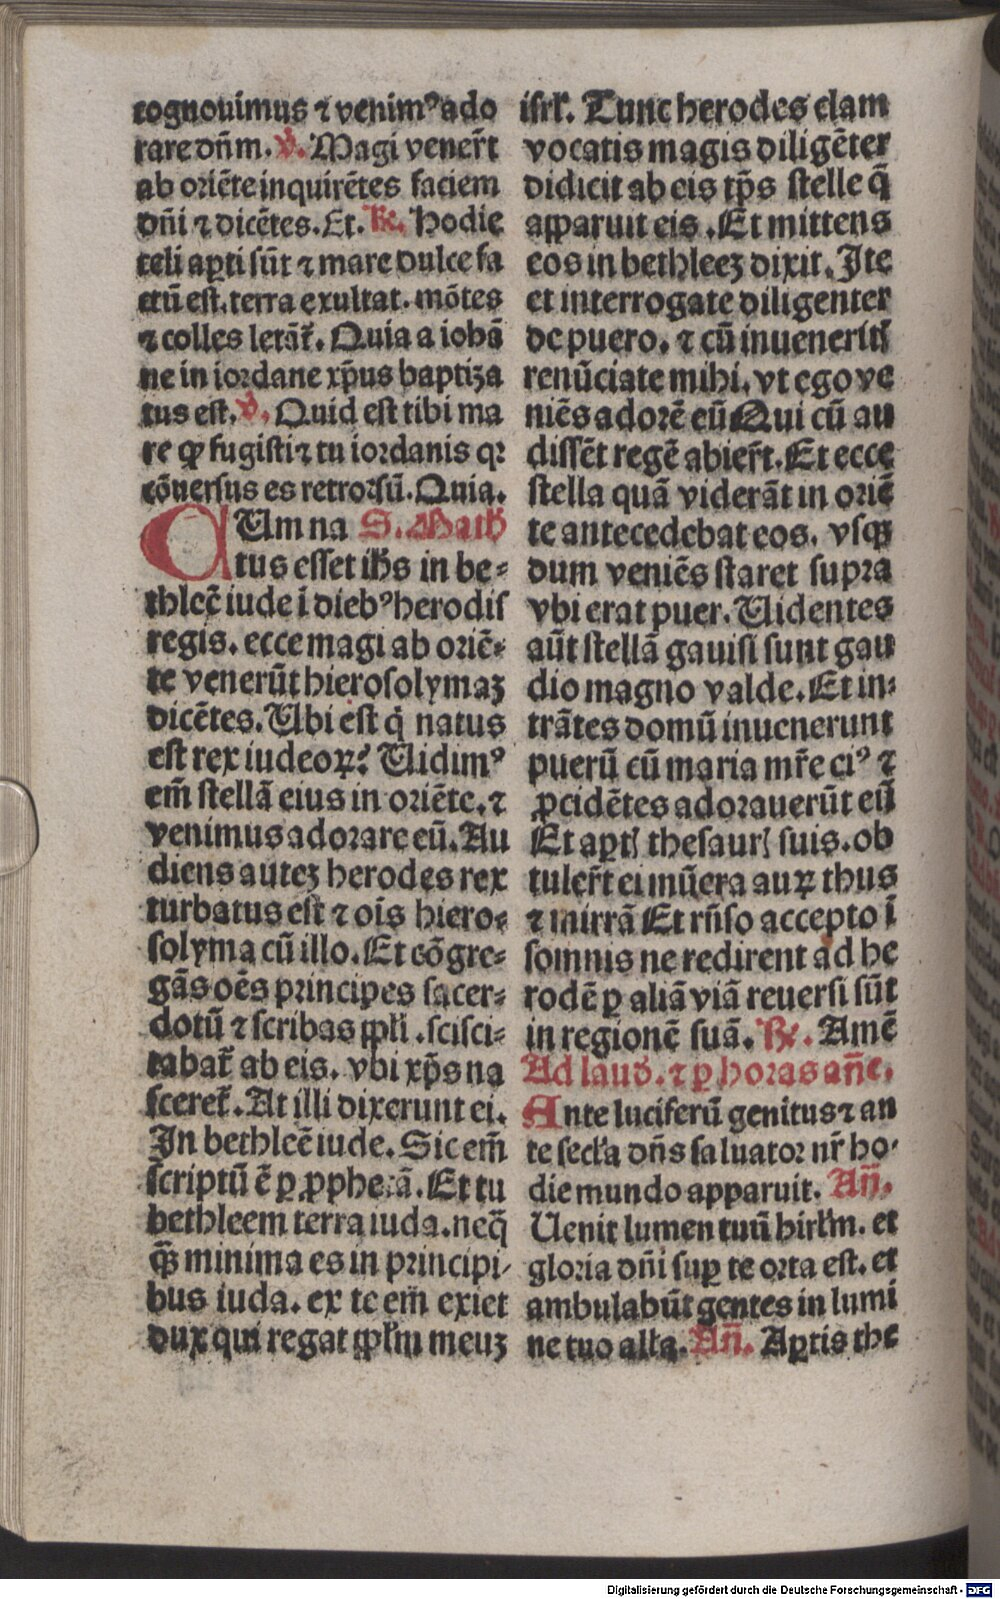 cognouimus ⁊ venimꝰ ado
rare dñm. v̾. Magi vener̃t
ab oriẽte inquirẽtes faciem
dñi ⁊ dicẽtes. Et. ℟. Hodie
celi aꝑti sũt ⁊ mare dulce fa
ctũ est. terra exultat. mõtes
⁊ colles letãt᷑. Quia a iohã
ne in iordane xp̃us baptiza
tus est. v̾. Quid est tibi ma
re ꝙ fugisti ⁊ tu iordanis qr
cõuersus es retrorsũ. Quia.
CUm na S. Math
tus esset ihs in be⸗
thleẽ iude ĩ diebꝰ herodis
regis. ecce magi ab oriẽ⸗
te venerũt hierosolymaz
dicẽtes. Ubi est q̇ natus
est rex iudeoꝝ? Uidimꝰ
em̃ stellã eius in oriẽte. ⁊
venimus adorare eũ. Au
diens autez herodes rex
turbatus est ⁊ oĩs hiero⸗
solyma cũ illo. Et cõgre⸗
gãs oẽs principes sacer⸗
dotũ ⁊ scribas ppl̓i. scisci⸗
tabat᷑ ab eis. vbi xp̃s na
sceret᷑. At illi dixerunt ei.
In bethleẽ iude. Sic em̃
scriptũ ẽ ꝑ ꝓphetã. Et tu
bethleem terra iuda. neq̃
q̃ꝫ minima es in principi⸗
bus iuda. ex te em̃ exiet
dux qui regat ppl̓m meuz
isrl̓. Tunc herodes clam
vocatis magis diligẽter
didicit ab eis tp̃s stelle q̃
apparuit eis. Et mittens
eos in bethleez dixit. Ite
et interrogate diligenter
de puero. ⁊ cũ inueneritꝭ
renũciate mihi. vt ego ve
niẽs adorẽ eũ Qui cũ au
dissẽt regẽ abier̃t. Et ecce
stella quã viderãt in oriẽ
te antecedebat eos. vsqꝫ
dum veniẽs staret supra
vbi erat puer. Uidentes
aũt stellã gauisi sunt gau
dio magno valde. Et in⸗
trãtes domũ inuenerunt
puerũ cũ maria mr̃e eiꝰ ⁊
ꝓcidẽtes adorauerũt eũ
Et aꝑtꝭ thesaurꝭ suis. ob
tuler̃t ei mũera auꝝ thus
⁊ mirrã Et rñso accepto ĩ
somnis ne redirent ad he
rodẽ ꝑ aliã viã reuersi sũt
in regionẽ suã. ℟. Amẽ
Ad laud̾. ⁊ ꝑ horas añe.
Ante luciferũ genitus ⁊ an
te secl̓a dñs saluator nr̃ ho⸗
die mundo apparuit. Añ.
Uenit lumen tuũ hirl̓m. et
gloria dñi suꝑ te orta est. et
ambulabũt gentes in lumi
ne tuo all̓a. Añ. Aꝑtis the
Digitalisierung gefördert durch die Deutsche Forschungsgemeinschaft - DFG